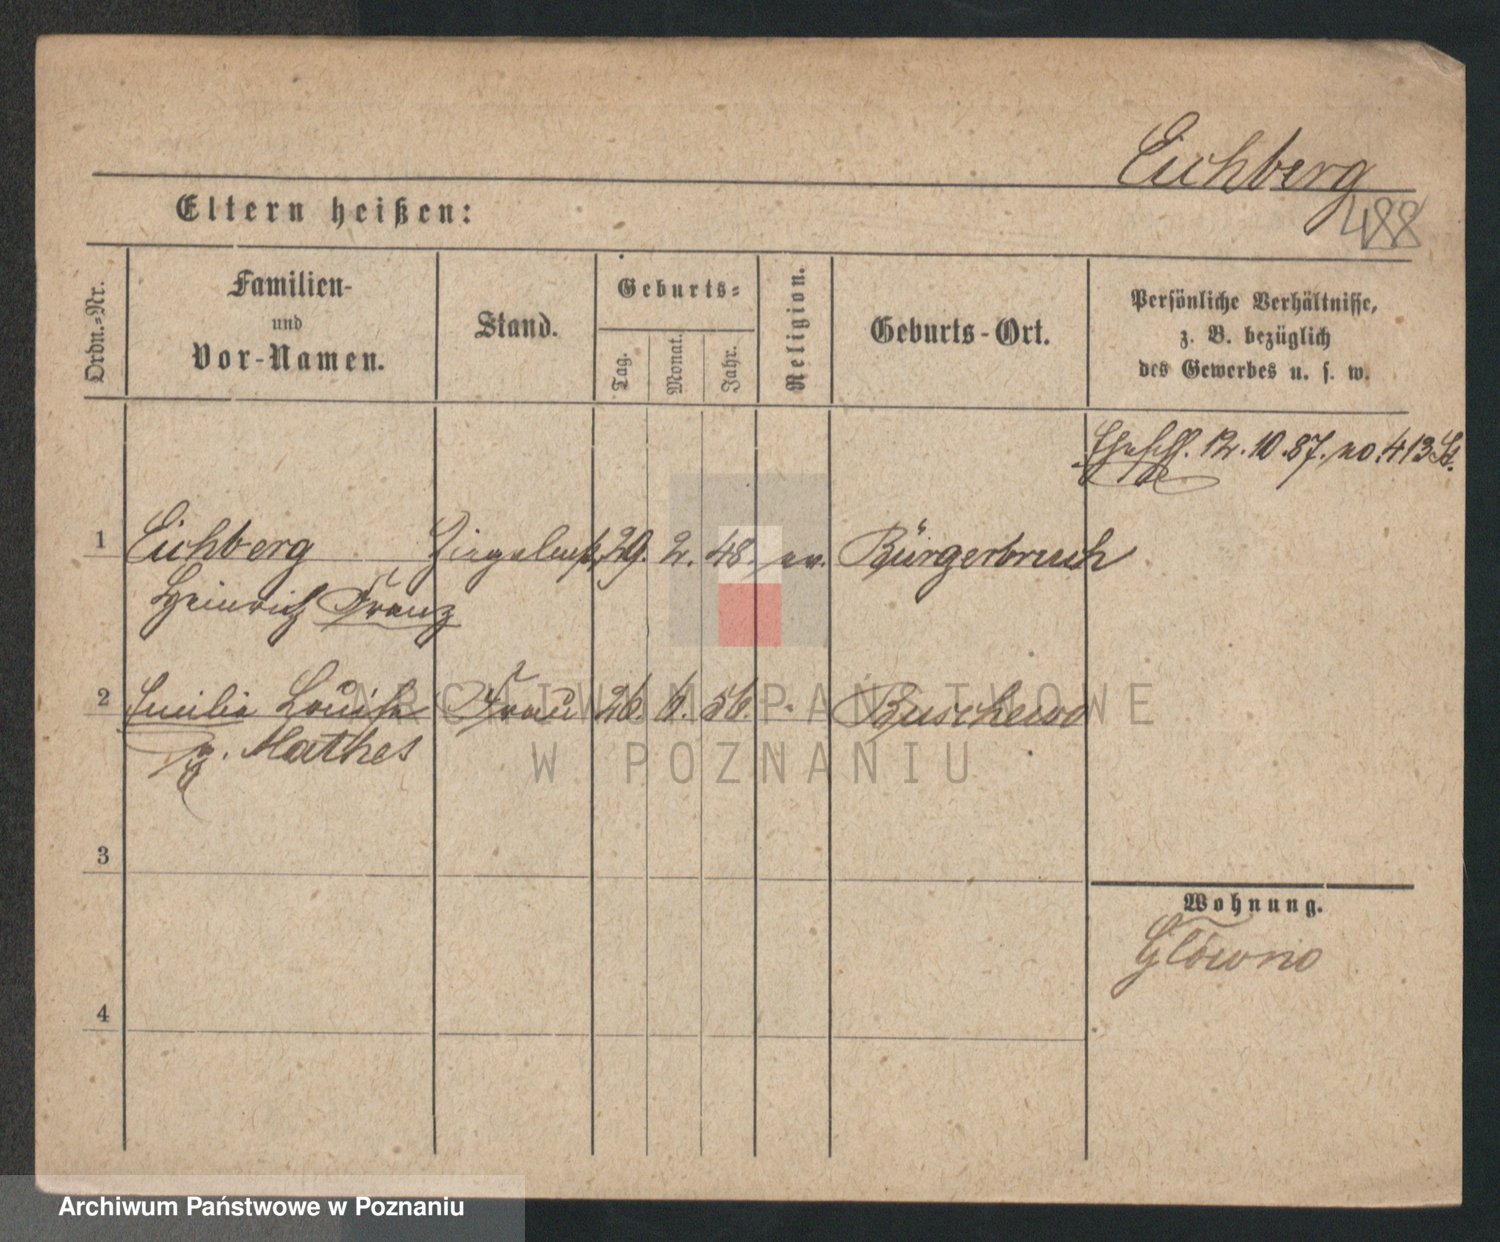 Eichberg
488
Eltern heißen:
Ordn.-Nr.
Familien-
und
Vor-Namen.
Stand.
Geburts-
Tag.
Monat.
Jahr.
Religion.
Geburts-Ort.
Persönliche Verhältnisse,
z. B. bezüglich
des Gewerbes u. s. w.
12.10.87. no 413
1 Eichberg 29. 2. 48. ev. Bürgerbruch
Heinrich Franz
2 Emilie Louise Frau 26. 6. 56. " Buschewo
g. Mathes
3
4
Wohnung.
Glowno
ARCHIWUM PAŃSTWOWE
W POZNANIU
Archiwum Państwowe w Poznaniu